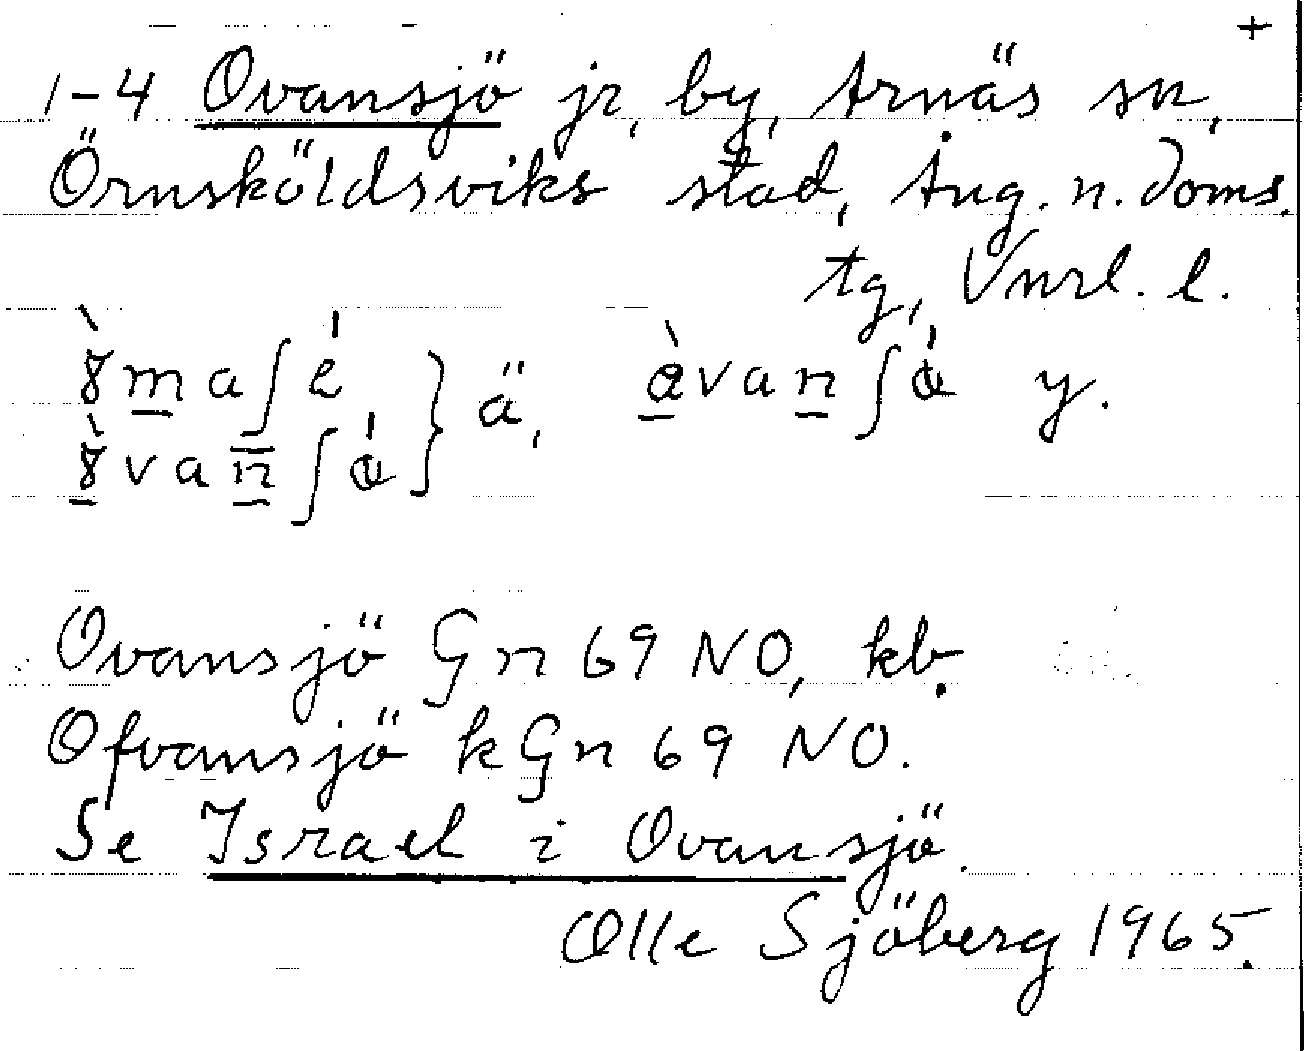 +
1-4 Ovansjö jr, by, Arnäs sn,
Örnsköldsviks stad, Ång. n. doms.
tg, Vnrl. l.
Ovansjö Gn 69 NO, kb.
Ofvansjö kGn 69 NO.
Se Israel i Ovansjö.
Olle Sjöberg 1965.